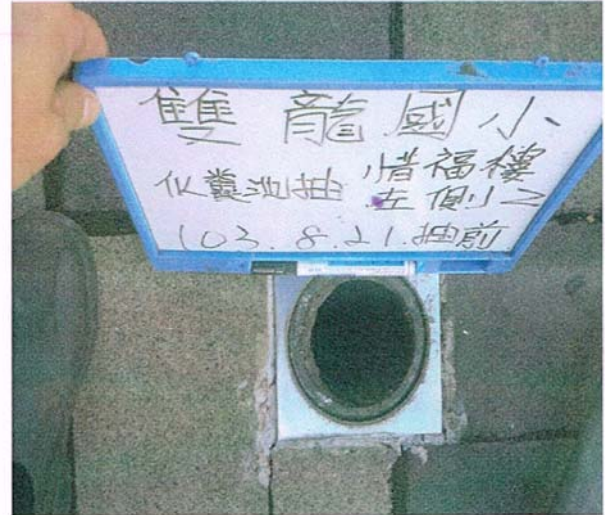 雙龍國小
化糞池抽 惜福樓
左側2
103.8.21.抽前